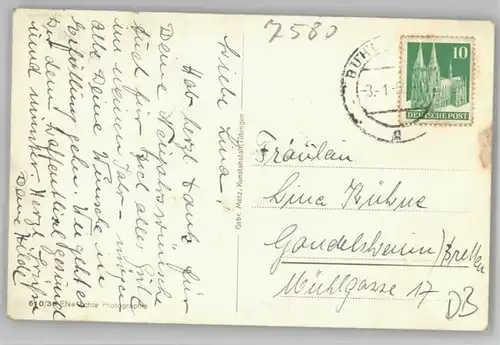 7580
Liebe Lina!
Hab herzl. Dank für
Deine Neujahrswünsche
Auch für Dich alles Gute
im neuen Jahr - mögen
alle Deine Wünsche in
Erfüllung gehen. Wie geht es
Dir denn, hoffentlich gesund
und munter. Herzl. Grüße
Deine Hilde!
Gebr. Metz, Kunstanstalt, Tübingen
BÜHL
-3.-1.-5
a
10
DEUTSCHE POST
Fräulein
Lina Kühne
Gondelsheim/Bretten
Mühlgasse 17
DB
Echte Photographie